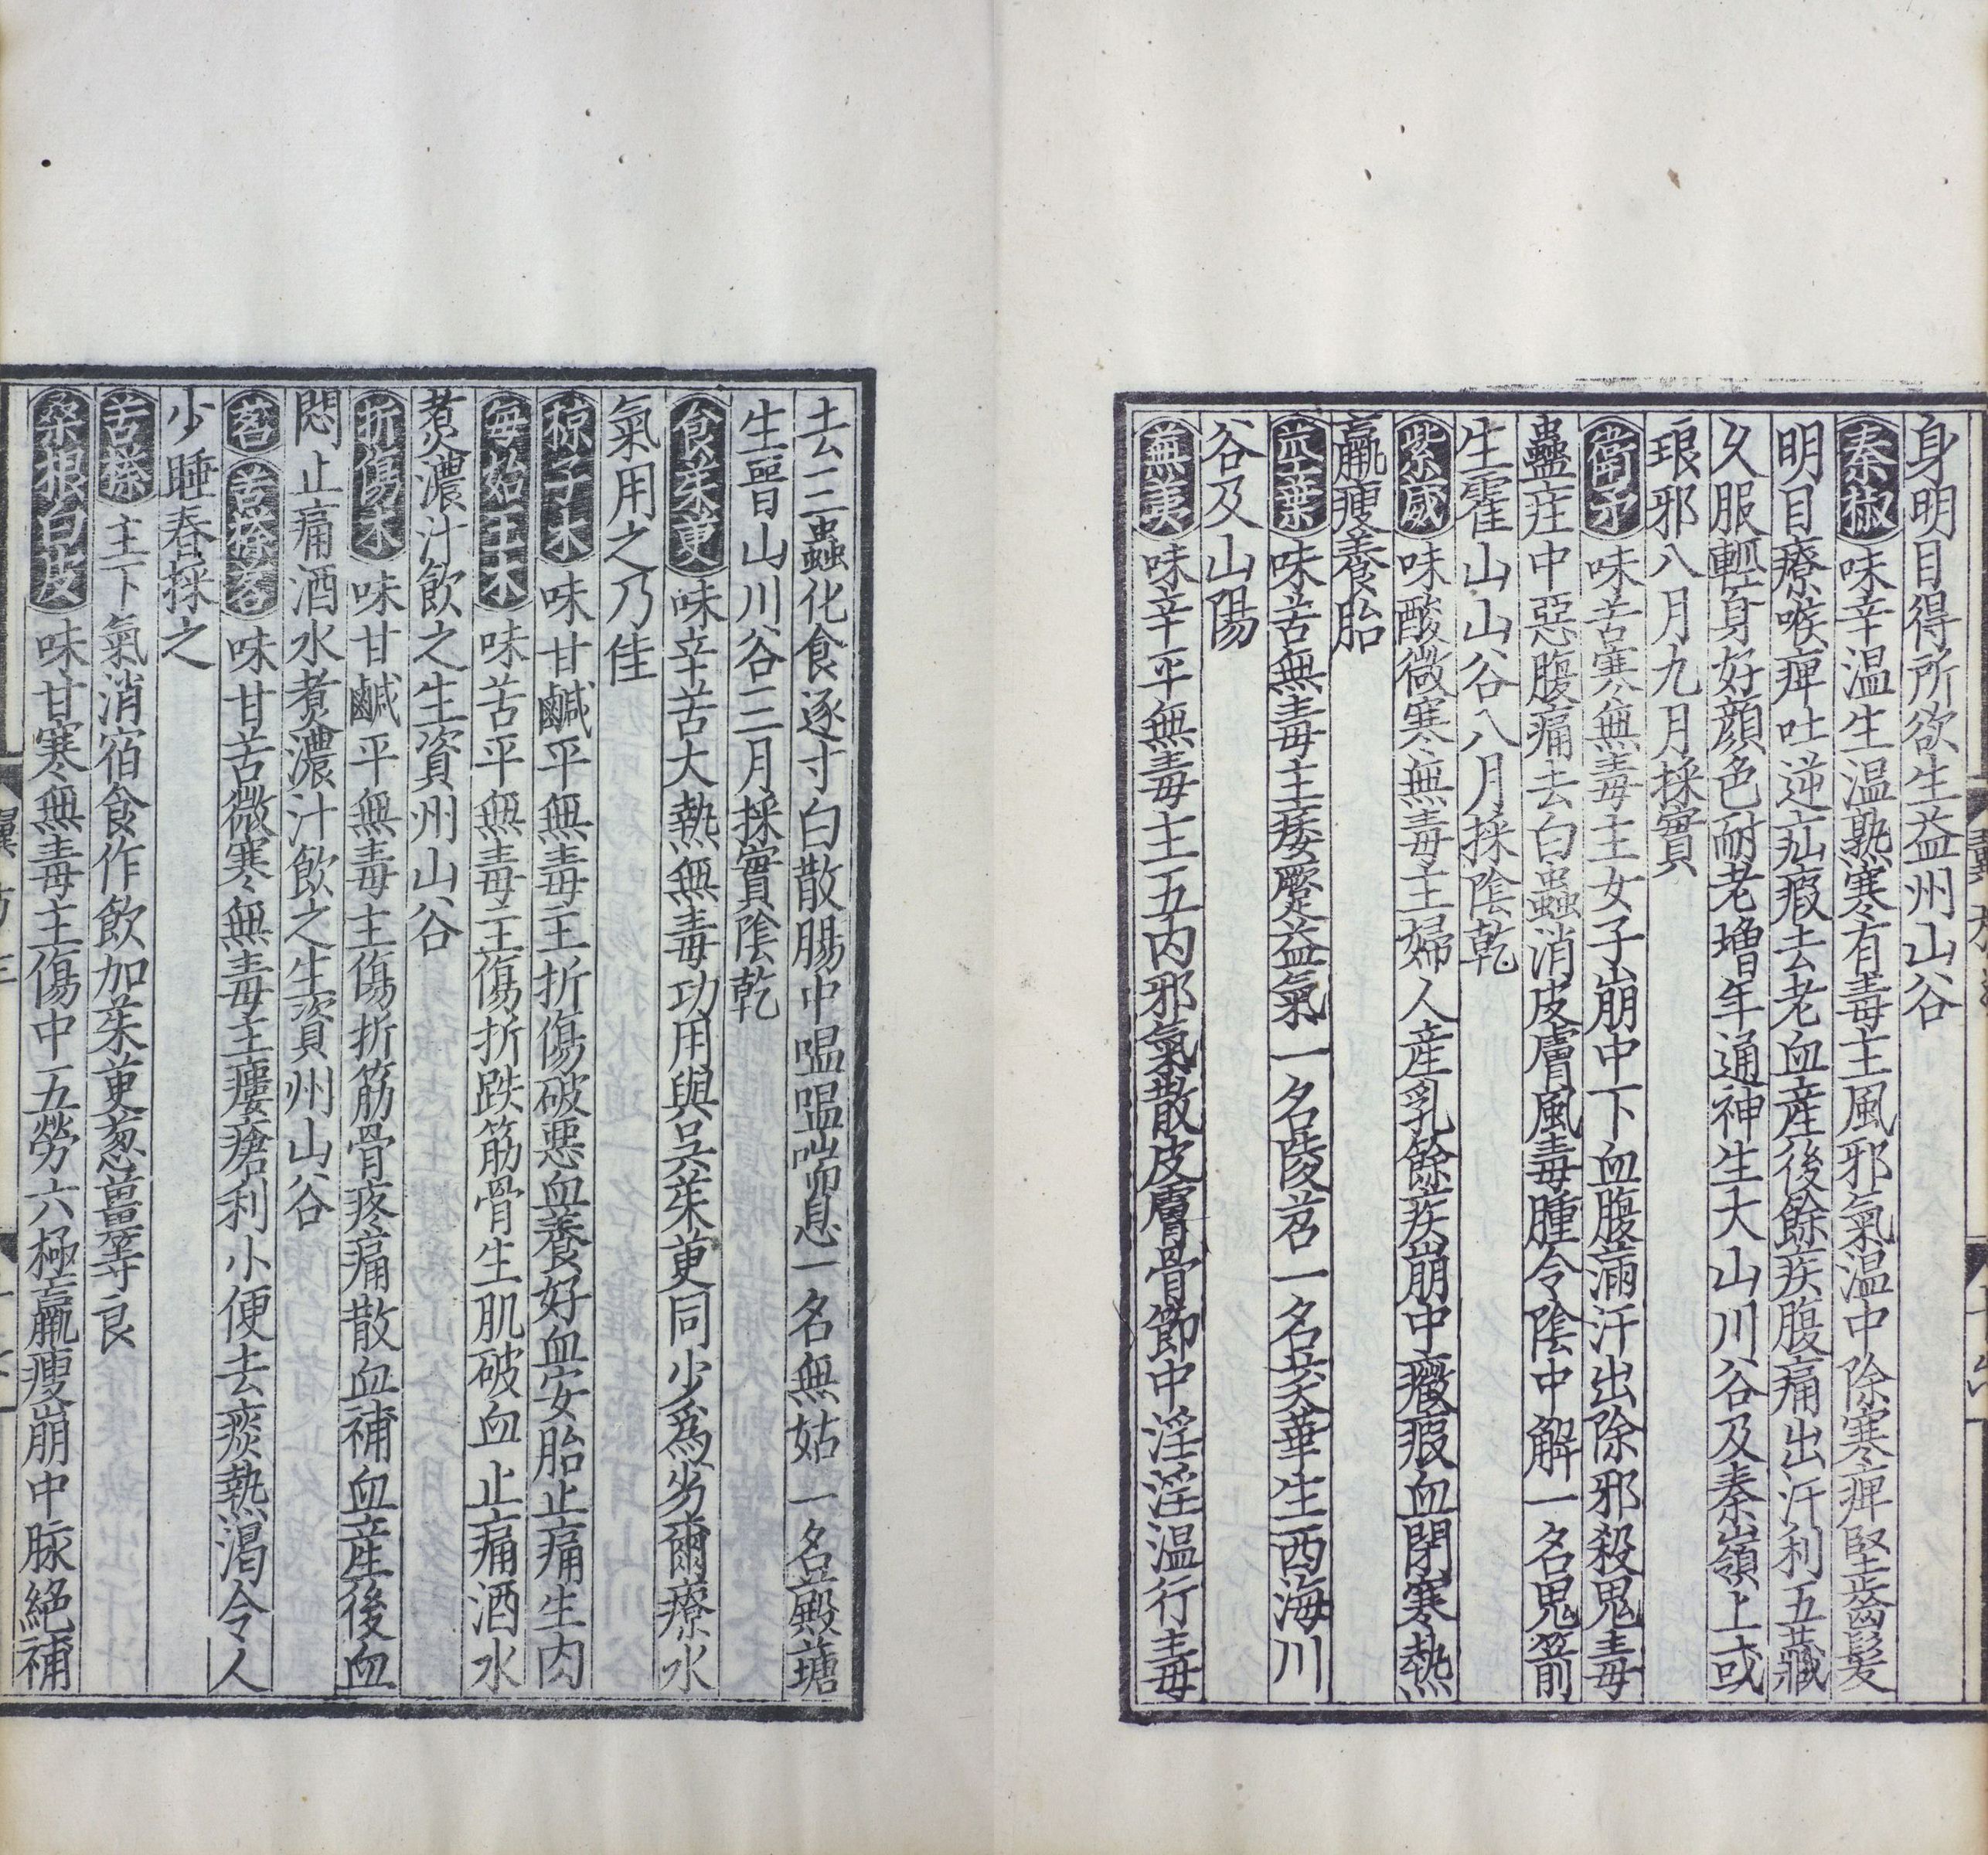 身明目得所欲生益州山谷
秦椒味辛温生温熟寒有毒主風邪氣温中除寒痺堅齒髮
明目療喉痺吐逆疝瘕去老血産後餘疾腹痛出汗利五藏
久服輕身好顔色耐老增年通神生大山川谷及秦嶺上或
琅邪八月九月採實
衛矛味苦寒無毒主女子崩中下血腹滿汗出除邪殺鬼毒
蠱疰中惡腹痛去白蟲消皮膚風毒腫令陰中解一名鬼箭
生霍山山谷八月採陰乾
紫葳味酸微寒無毒主婦人産乳餘疾崩中癥瘕血閉寒熱
羸瘦養胎
莖葉味苦無毒主痿躄益氣一名陵苕一名茇華生西海川
谷及山陽
蕪荑味辛平無毒主五内邪氣散皮膚骨節中淫淫温行毒
去三蟲化食逐寸白散腸中嗢嗢喘息一名無姑一名䕋蓎
生晉山川谷三月採實陰乾
食茱萸味辛苦大熱無毒功用與吳茱萸同少爲劣爾療水
氣用之乃佳
椋子木味甘鹹平無毒主折傷破惡血養好血安胎止痛生肉
每始王木味苦平無毒主傷折跌筋骨生肌破血止痛酒水
煮濃汁飲之生資州山谷
折傷木味甘鹹平無毒主傷折筋骨疼痛散血補血産後血
悶止痛酒水煮濃汁飲之生資州山谷
茗苦㮈茗味甘苦微寒無毒主瘻瘡利小便去痰熱渴令人
少睡春採之
苦㮈主下氣消宿食作飲加茱萸葱薑等良
桑根白皮味甘寒無毒主傷中五勞六極羸瘦崩中脉絶補